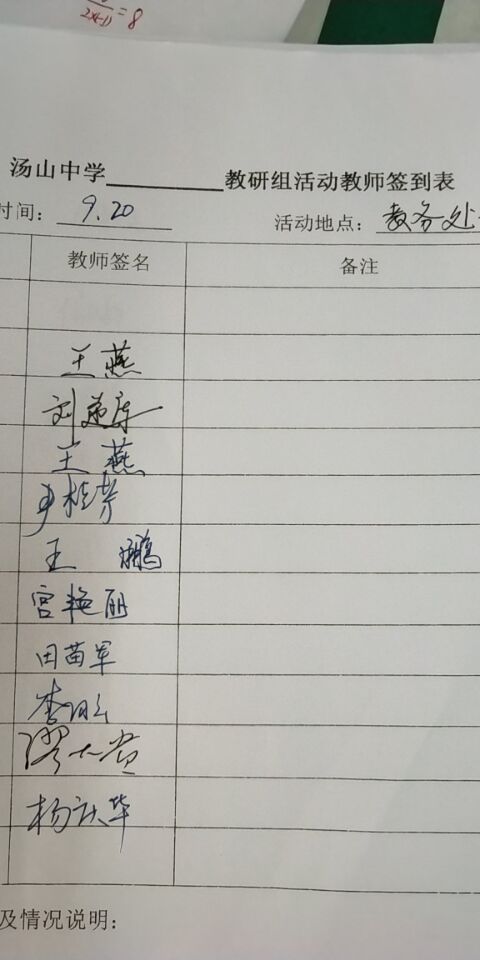 2×(-1) = 8
汤山中学________教研组活动教师签到表
时间： 9.20 活动地点： 教务处
教师签名 备注
王燕
刘
王燕
尹桂芳
王鹏
宫艳丽
田苗军
李
缪大贵
杨庆华
及情况说明：